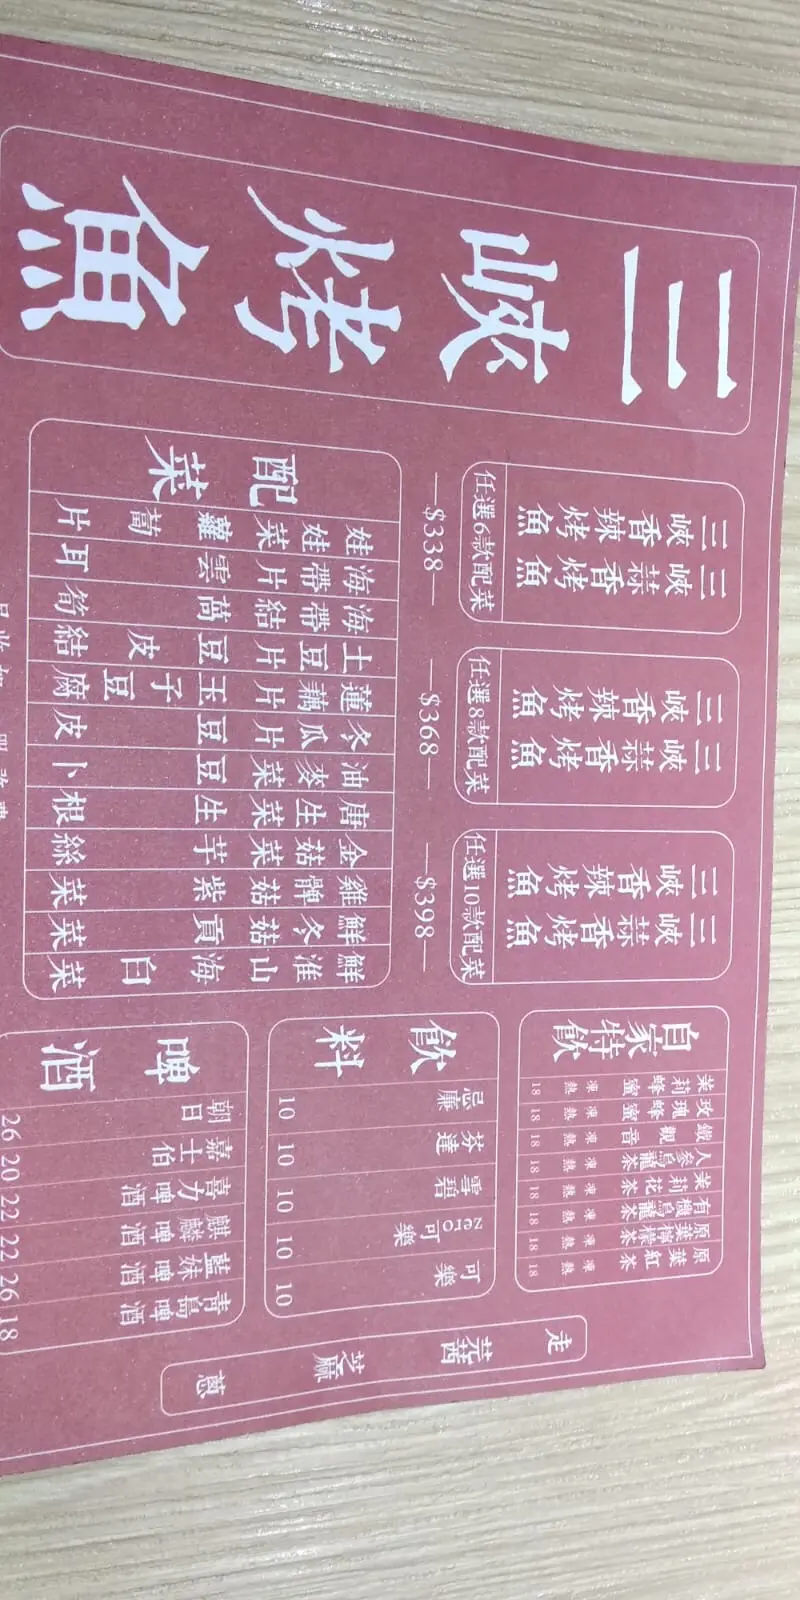 三峽烤魚
三峽香辣烤魚
三峽蒜香烤魚
任選6款配菜
—$338—
三峽香辣烤魚
三峽蒜香烤魚
任選8款配菜
—$368—
三峽香辣烤魚
三峽蒜香烤魚
任選10款配菜
—$398—
配菜
娃娃菜
海帶片
海帶結
土豆片
蓮藕片
冬瓜片
油麥菜
唐生菜
金菇菜
雞髀菇
鮮冬菇
鮮淮山
蘿蔔片
雲耳
萵筍
豆皮結
玉子豆腐
豆皮
豆卜
生根
芋絲
紫菜
貢菜
海白菜
自家特飲
茉莉蜂蜜 凍 熱 18
玫瑰蜂蜜 凍 熱 18
鐵觀音 凍 熱 18
人參烏龍茶 凍 熱 18
茉莉花茶 凍 熱 18
有機烏龍茶 凍 熱 18
原葉檸檬茶 凍 熱 18
原葉紅茶 凍 熱 18
飲料
忌廉 10
芬達 10
雪碧 10
Zero可樂 10
可樂 10
啤酒
朝日 26
嘉士伯 20
喜力啤酒 22
麒麟啤酒 22
藍妹啤酒 26
青島啤酒 18
走 芫茜 芝麻 蔥